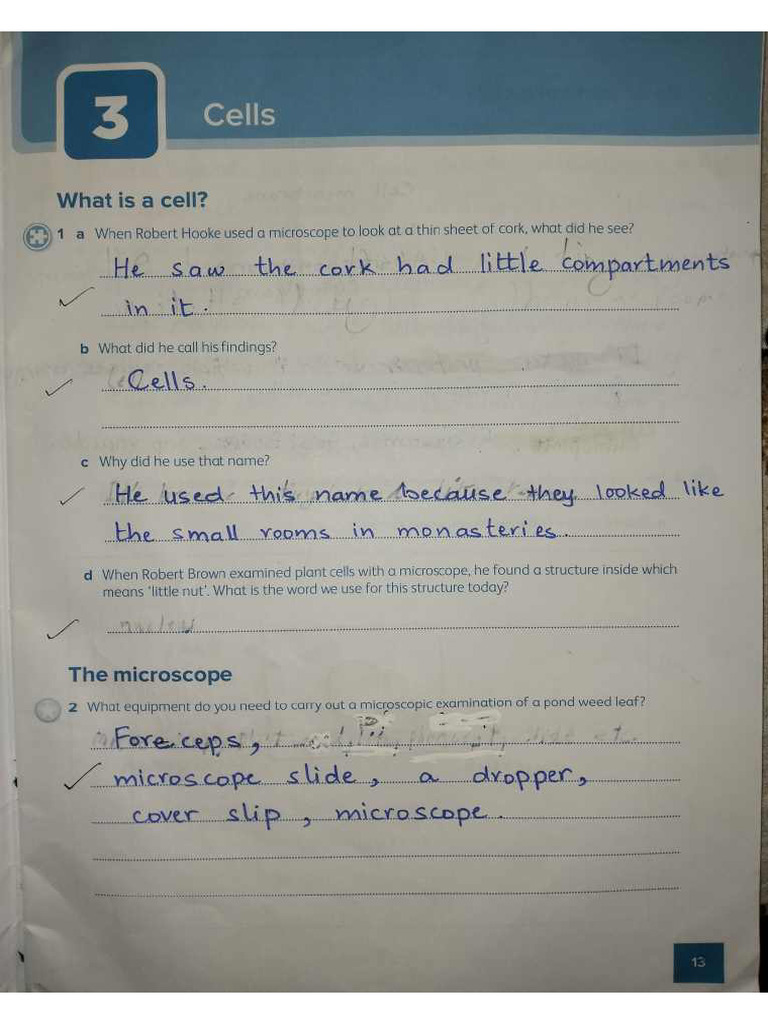 3
Cells
What is a cell?
1 a When Robert Hooke used a microscope to look at a thin sheet of cork, what did he see?
He saw the cork had little compartments
in it.
b What did he call his findings?
Cells.
c Why did he use that name?
He used this name because they looked like
the small rooms in monasteries.
d When Robert Brown examined plant cells with a microscope, he found a structure inside which
means ‘little nut’. What is the word we use for this structure today?
The microscope
2 What equipment do you need to carry out a microscopic examination of a pond weed leaf?
Foreiceps,
microscope slide, a dropper,
cover slip, microscope.
13